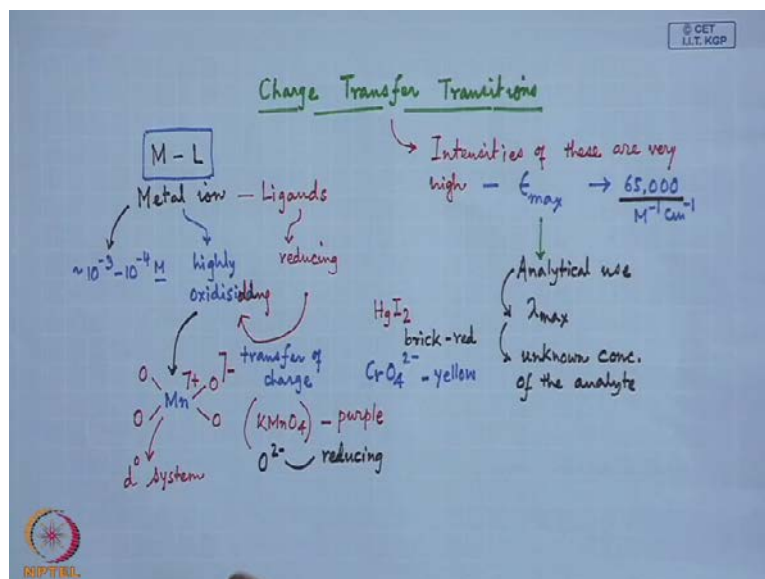 © CET
I.I.T. KGP
Charge Transfer Transitions
M - L
Metal ion - Ligands
~10⁻³-10⁻⁴ M
highly
oxidisidding
reducing
transfer of
charge
O O 7+ O 7-
Mn
O O
d⁰ system
(KMnO4) - purple
O²⁻ reducing
HgI2
brick-red
CrO4²⁻ - yellow
Intensities of these are very
high - ϵmax → 65,000
M⁻¹ cm⁻¹
Analytical use
λmax
unknown conc.
of the analyte
NPTEL